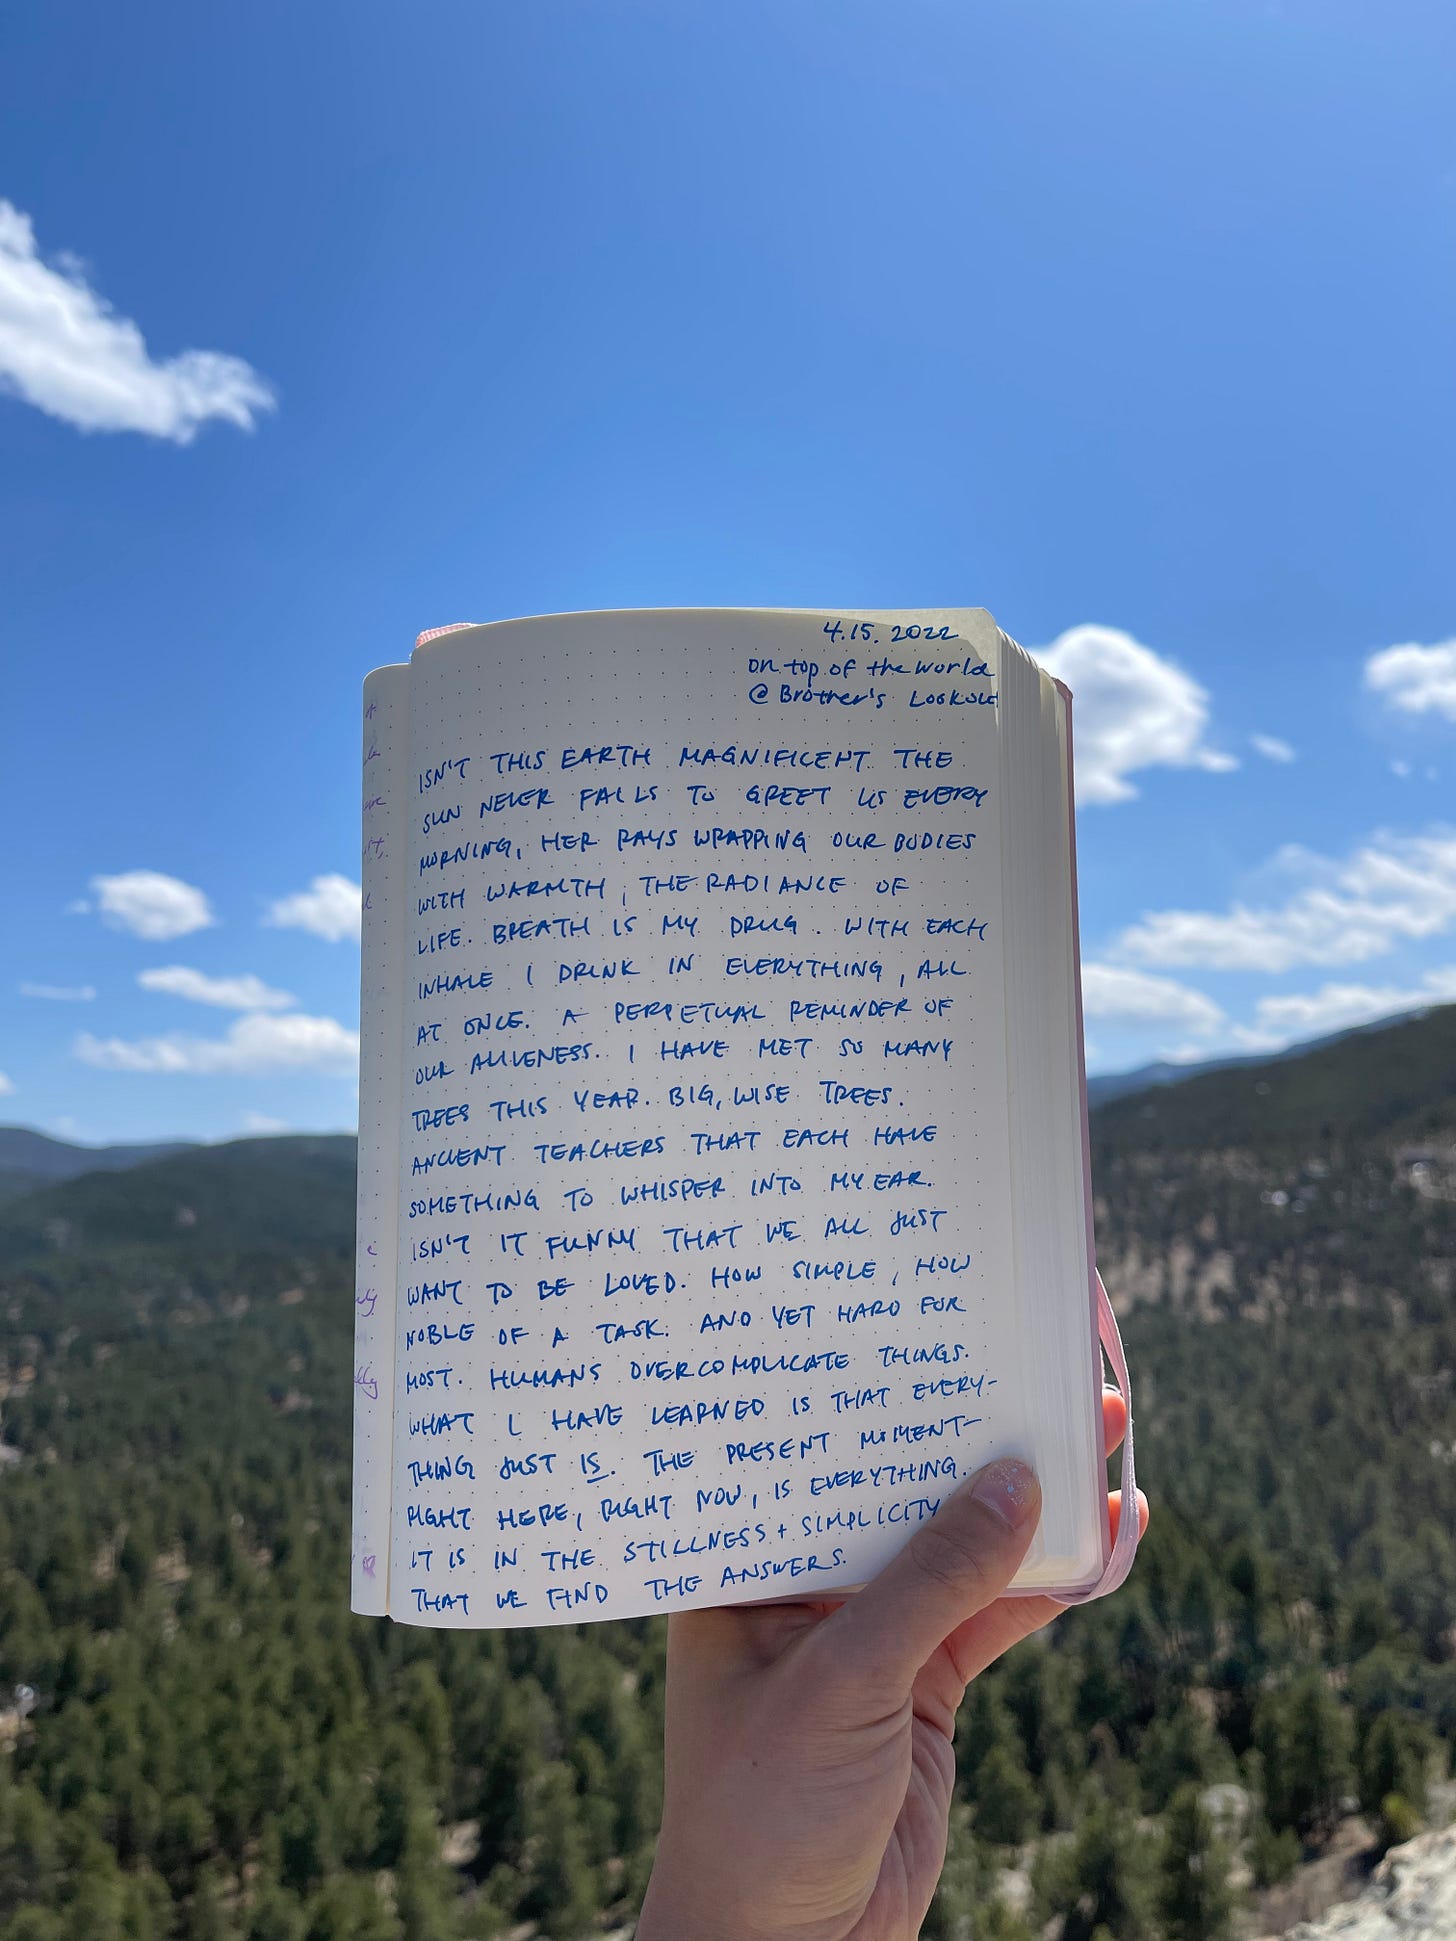 4.15.2022
on top of the world
@ Brother's Lookout
ISN'T THIS EARTH MAGNIFICENT THE
SUN NEVER FAILS TO GREET US EVERY
MORNING, HER RAYS WRAPPING OUR BODIES
WITH WARMTH, THE RADIANCE OF
LIFE. BREATH IS MY DRUG. WITH EACH
INHALE I DRINK IN EVERYTHING, ALL
AT ONCE. A PERPETUAL REMINDER OF
OUR ALIVENESS. I HAVE MET SO MANY
TREES THIS YEAR. BIG, WISE TREES.
ANCIENT TEACHERS THAT EACH HAVE
SOMETHING TO WHISPER INTO MY EAR.
ISN'T IT FUNNY THAT WE ALL JUST
WANT TO BE LOVED. HOW SIMPLE, HOW
NOBLE OF A TASK. AND YET HARD FOR
MOST. HUMANS OVERCOMPLICATE THINGS.
WHAT I HAVE LEARNED IS THAT EVERY-
THING JUST IS. THE PRESENT MOMENT-
RIGHT HERE, RIGHT NOW, IS EVERYTHING.
IT IS IN THE STILLNESS + SIMPLICITY
THAT WE FIND THE ANSWERS.